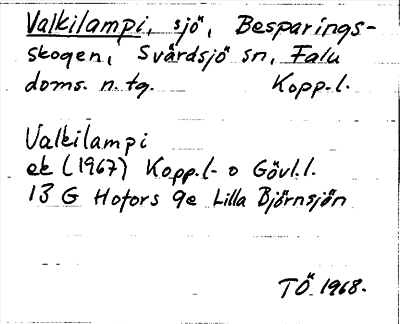 Valkilampi, sjö, Besparings-
skogen, Svärdsjö sn, Falu
doms. n. tg. Kopp. l.
Valkilampi
ek (1967) Kopp. l - o Gävl. l.
13 G Hofors 9e Lilla Björnsjön
TÖ 1968.